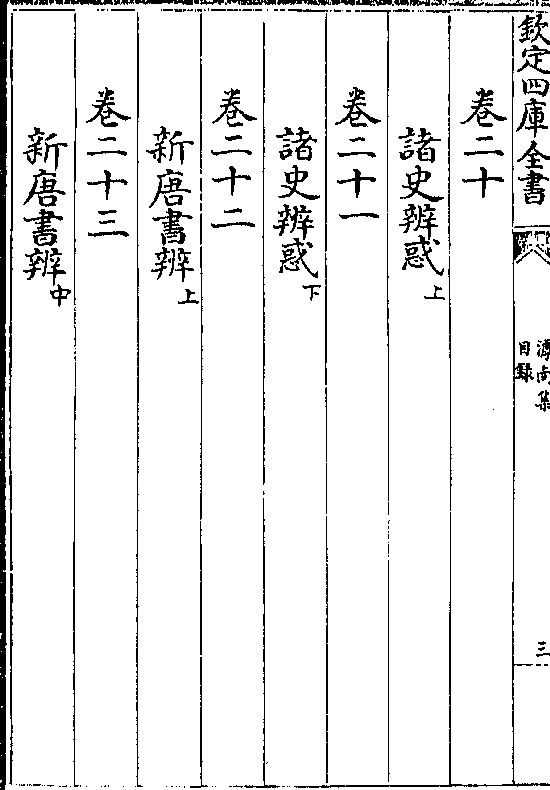 欽定四庫全書
滹南集
目録
三
卷二十
諸史辨惑上
卷二十一
諸史辨惑下
卷二十二
新唐書辨上
卷二十三
新唐書辨中